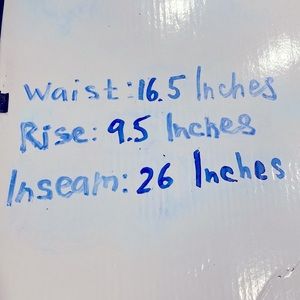 Waist: 16.5 Inches
Rise: 9.5 Inches
Inseam: 26 Inches